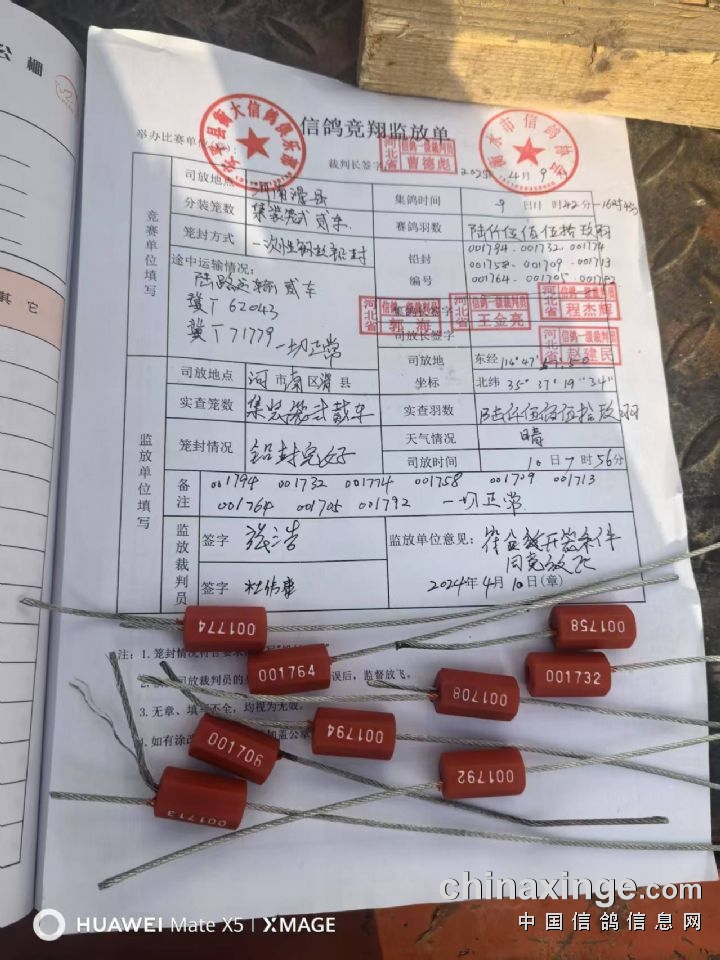 公棚
其它
信鸽竞翔监放单
安县衡大信鸽俱乐部
衡水市信鸽协会
举办比赛单位(章):
裁判长签字
河北省 信鸽一级裁判员 曹德彪
2025 4月9
竞赛单位填写
司放地点 河南滑县
集鸽时间 9日11时42分-16时
分装笼数 集装笼式贰车
赛鸽羽数 陆仟伍佰伍拾玖羽
笼封方式 一次性钢丝铅封
铅封编号
001794. 001732. 001774
001758. 001709. 001713
001764. 001705. 001792
途中运输情况:
陆路运输贰车
冀T 62043
冀T 71779 一切正常
河北省 信鸽一级裁判员 郭海
河北省 信鸽一级裁判员 王金亮
河北省 信鸽一级裁判员 程杰辉
司放长签字
河北省 信鸽一级裁判员 赵建民
监放单位填写
司放地点 河市南区滑县
司放地坐标 东经 114°47'
北纬 35°37'19"34"
实查笼数 集装笼式贰车
实查羽数 陆仟伍佰伍拾玖羽
笼封情况 铅封完好
天气情况 晴
司放时间 10日7时56分
备注 001794 001732 001774 001758 001709 001713
001764 001705 001792 一切正常
监放裁判员
签字 张浩
签字 杜伟康
监放单位意见: 符合放开笼条件
同意放飞
2024年4月10日(章)
注: 1. 笼封情况符合要求
司放裁判员的 误后，监督放飞。
3. 无章、填写不全，均视为无效。
4. 如有涂改 加盖公章
001774
001758
001764
001732
001708
001794
001706
001792
001713
HUAWEI Mate X5 | XMAGE
chinaxinge.com
中国信鸽信息网